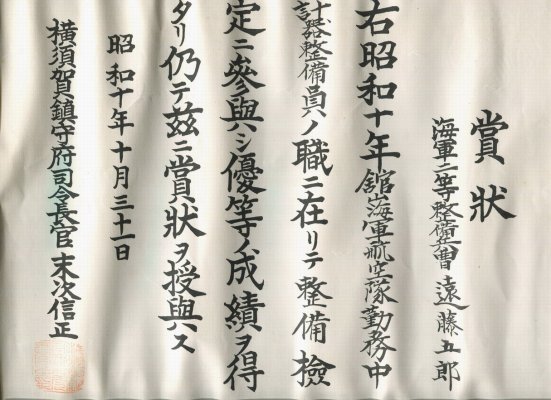 賞狀
海軍二等整備兵曹 遠藤五郎
右昭和十年館山海軍航空隊勤務中
計器整備員ノ職ニ在リテ整備檢
定ニ參與シ優等ノ成績ヲ得
タリ仍テ茲ニ賞狀ヲ授與ス
昭和十年十月三十一日
横須賀鎮守府司令長官 末次信正